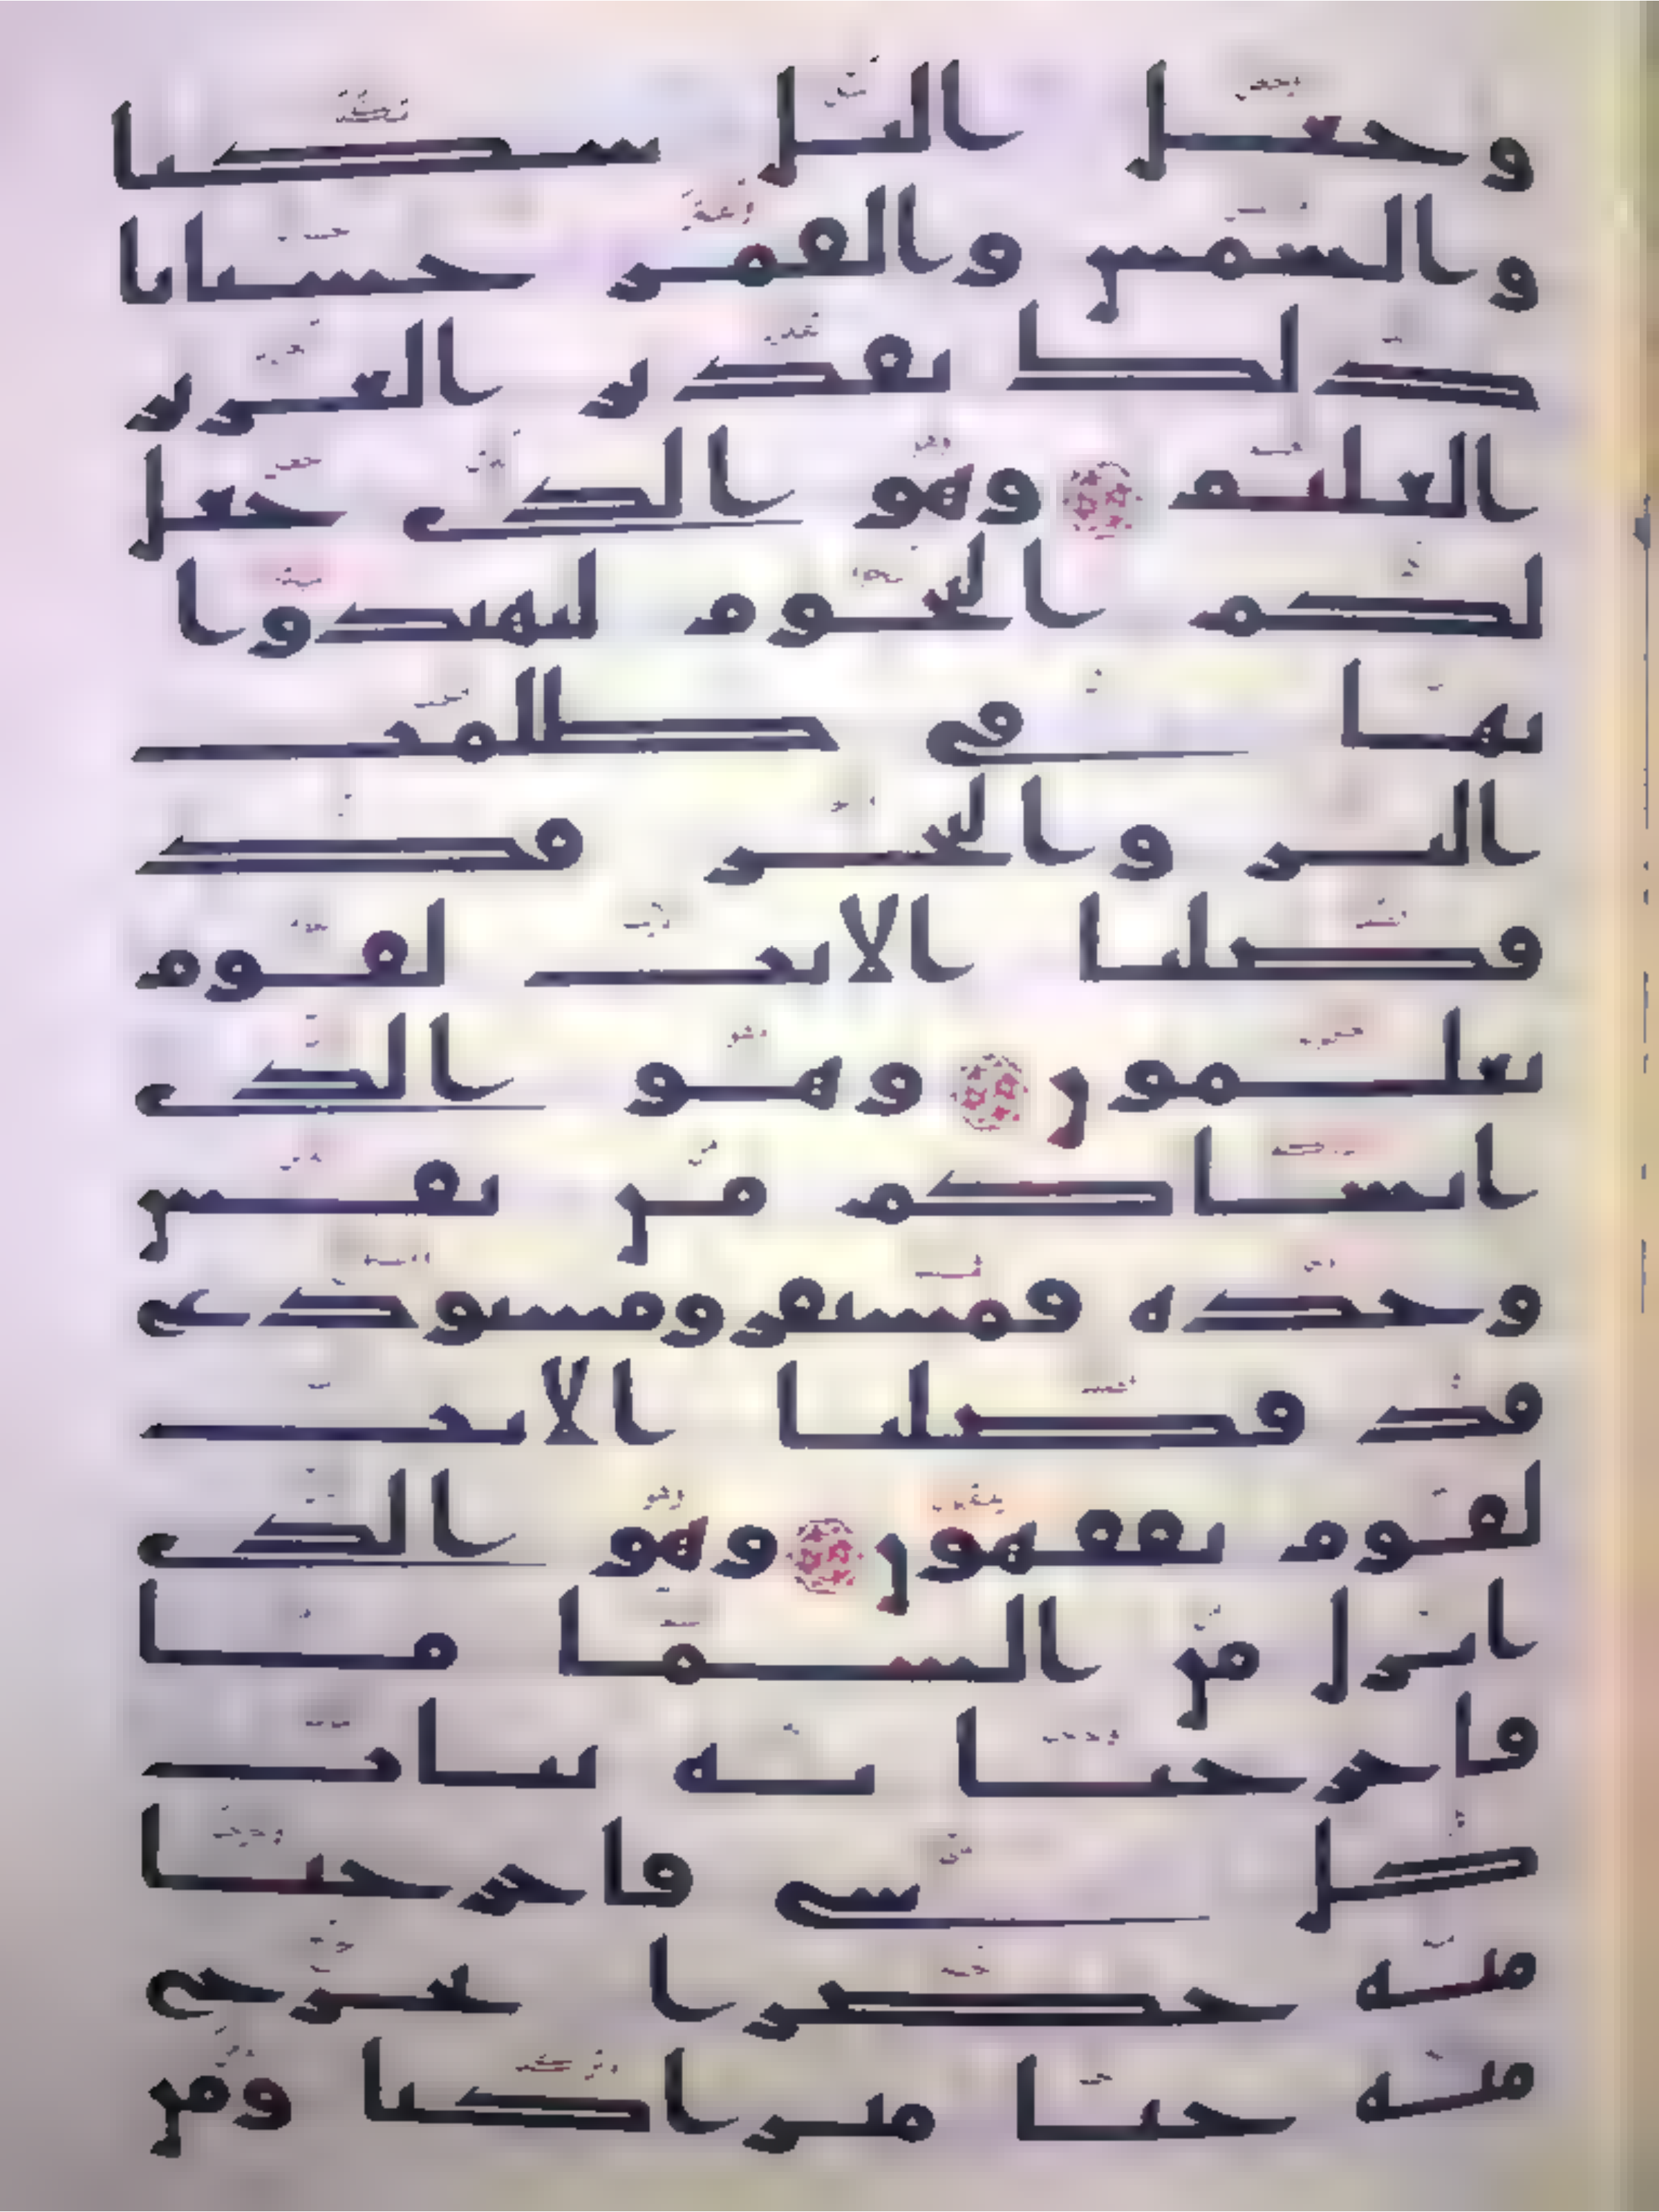 وجعل اليل سكنا
والشمس والقمر حسبانا
ذلك تقدير العزيز
العليم وهو الذي جعل
لكم النجوم لتهتدوا
بها في ظلمت
البر والبحر قد
فصلنا الايت لقوم
يعلمون وهو الذي
انشاكم من نفس
وحده فمستقر ومستودع
قد فصلنا الايت
لقوم يفقهون وهو الذي
انزل من السما ما
فاخرجنا به نبات
كل شي فاخرجنا
منه خضرا نخرج
منه حبا متراكبا ومن